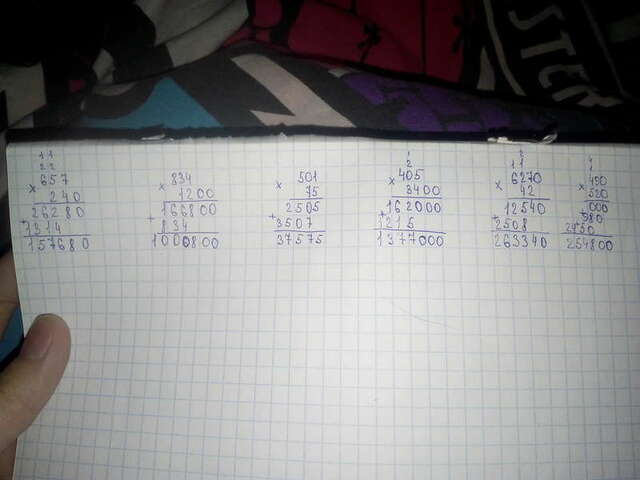 STER
1 1
2 2
× 657
240
26280
+ 1314
157680
× 834
1200
166800
+ 834
1000800
× 501
75
2505
+ 3507
37575
2
× 405
3400
162000
+ 1215
1377000
1 1
× 6270
42
12540
+ 2508
263340
× 490
520
000
+ 980
2450
254800